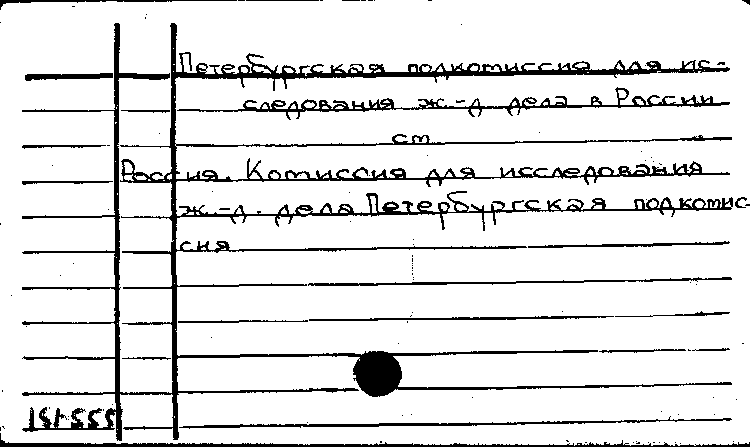 Петербургская подкомиссия для ис-
следования ж.-д. дела в России
ст
Россия. Комиссия для исследования
ж.-д. дела Петербургская подкомис-
сия